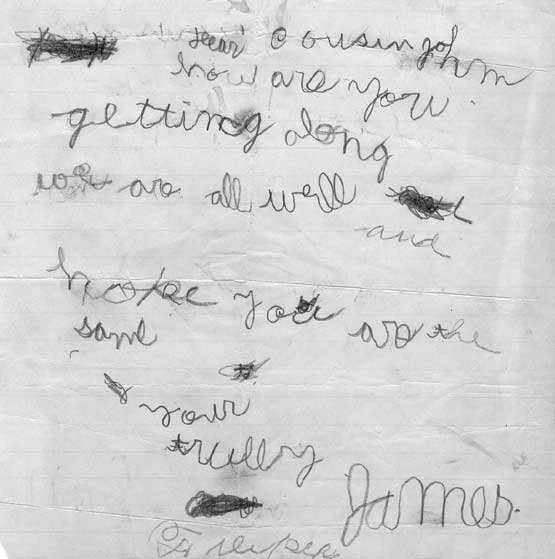 dear cousin john
how are you
getting along
we are all well
and
hope you are the
same
your
trully
James.